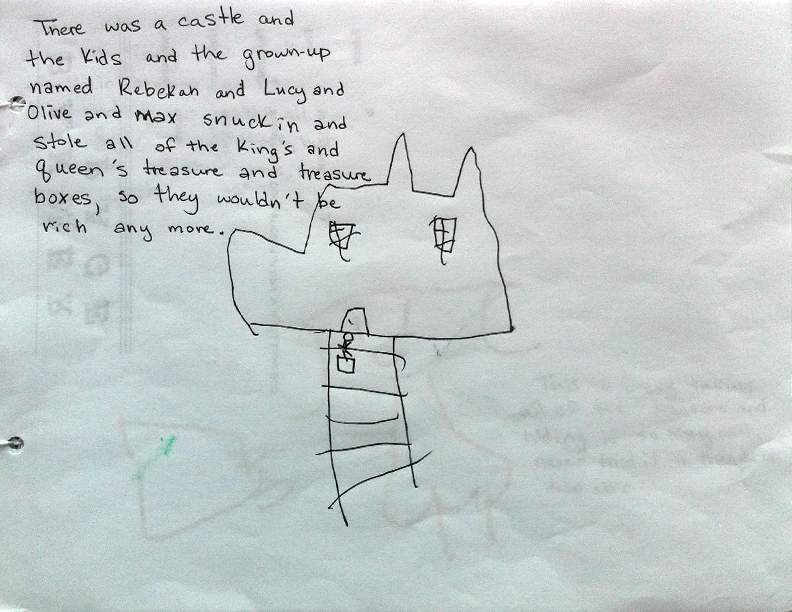 There was a castle and
the Kids and the grown-up
named Rebekah and Lucy and
Olive and Max snuck in and
stole all of the King's and
queen's treasure and treasure
boxes, so they wouldn't be
rich any more.